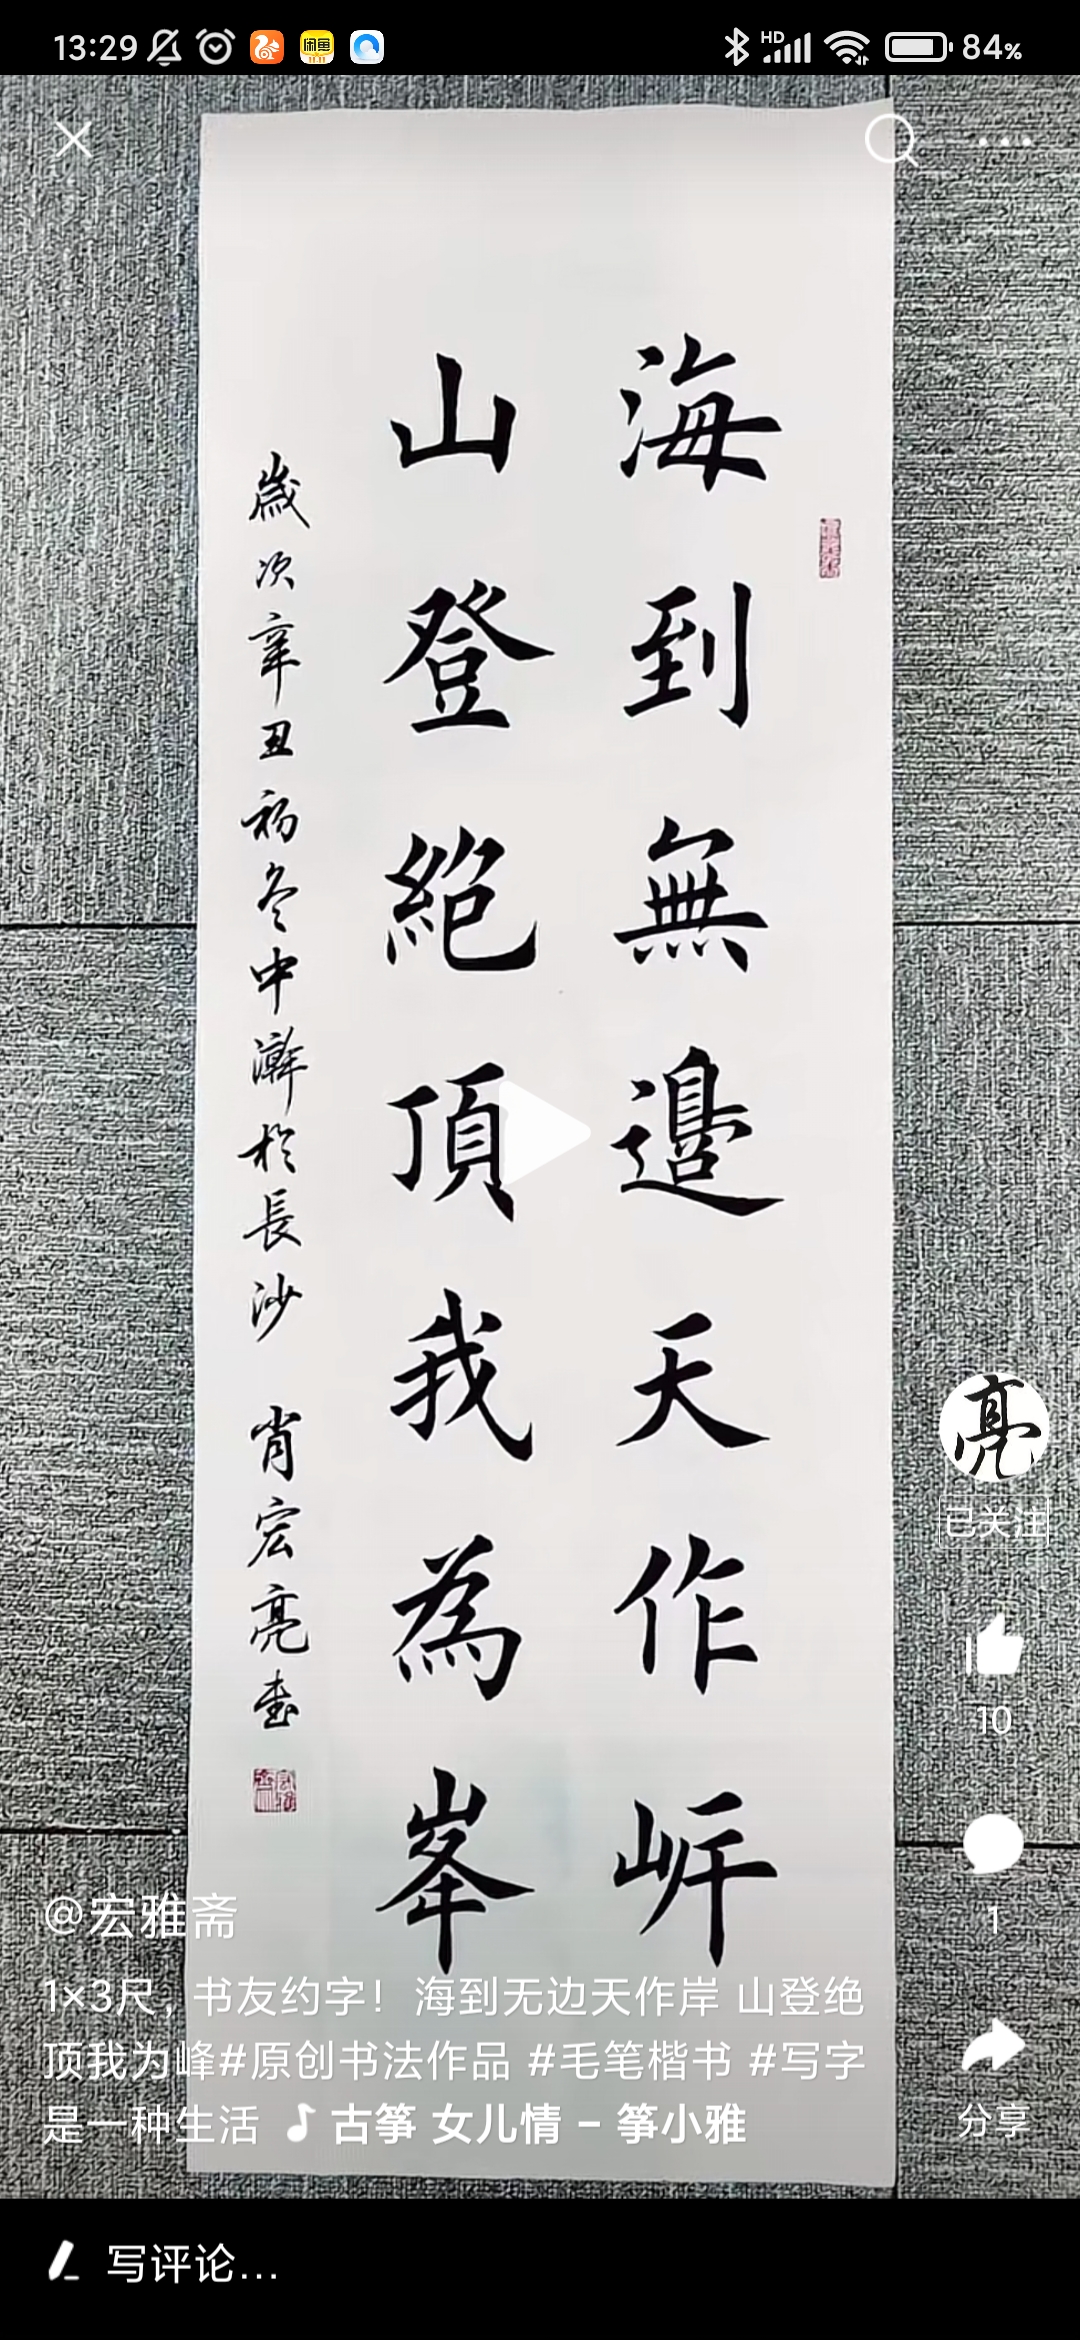 13:29
HD
84%
海到無邊天作岍
山登絕頂我為峯
歲次辛丑初冬中澣於長沙 肖宏亮書
亮
已关注
10
1
分享
@宏雅斋
1×3尺，书友约字！海到无边天作岸 山登绝
顶我为峰#原创书法作品 #毛笔楷书 #写字
是一种生活 古筝 女儿情 - 筝小雅
写评论...